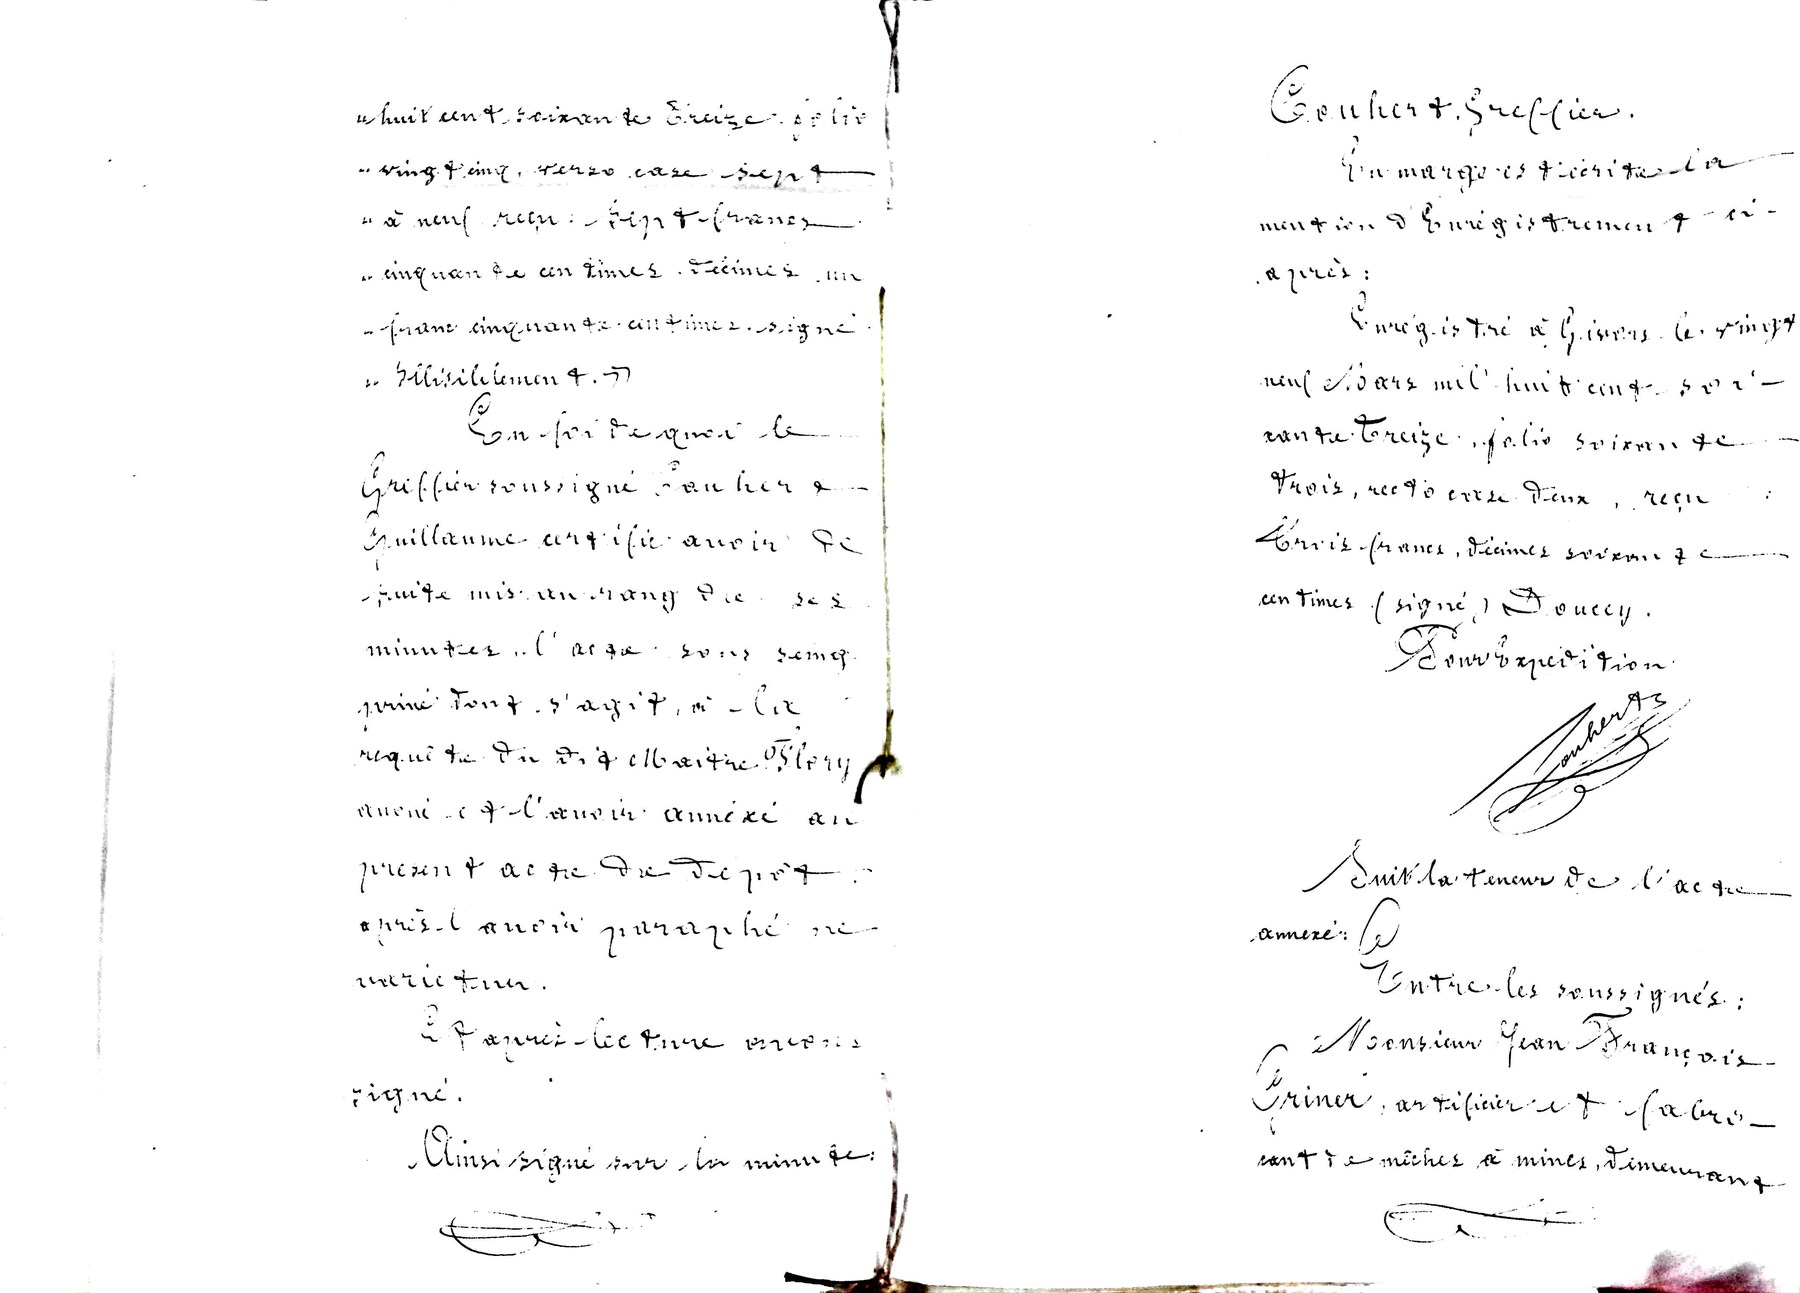 " huit cent soixante Treize folio
" vingt cinq, verso case sept
" à neuf reçu : Sept francs
" cinquante centimes. décimes un
" franc cinquante centimes. signé
" Illisiblement. »
En foi de quoi le
Greffier soussigné Couhert
Guillaume certifie avoir de
suite mis au rang de ses
minutes, l'acte sous seing
privé dont s'agit, à la
requête du dit Maître Flory
avoué et l'avoir annéxé au
présent acte de depôt
après l'avoir paraphé ne
varietur.
Et après lecture avons
signé.
Ainsi signé sur la minute:
Couhert, Greffier.
En marge est écrite la
mention d'Enrégistrement ci-
après :
Enrégistré à Givors le vingt
neuf Mars mil huit cent soi-
xante Treize, folio soixante
trois, recto case deux, reçu :
Trois francs, décimes soixante
centimes (signé) Doucey.
Pour Expédition
Couhert
Suit la teneur de l'acte
annexé:
Entre les soussignés :
Monsieur Jean François
Griner, artificier et fabri-
cant de mèches à mines, demeurant